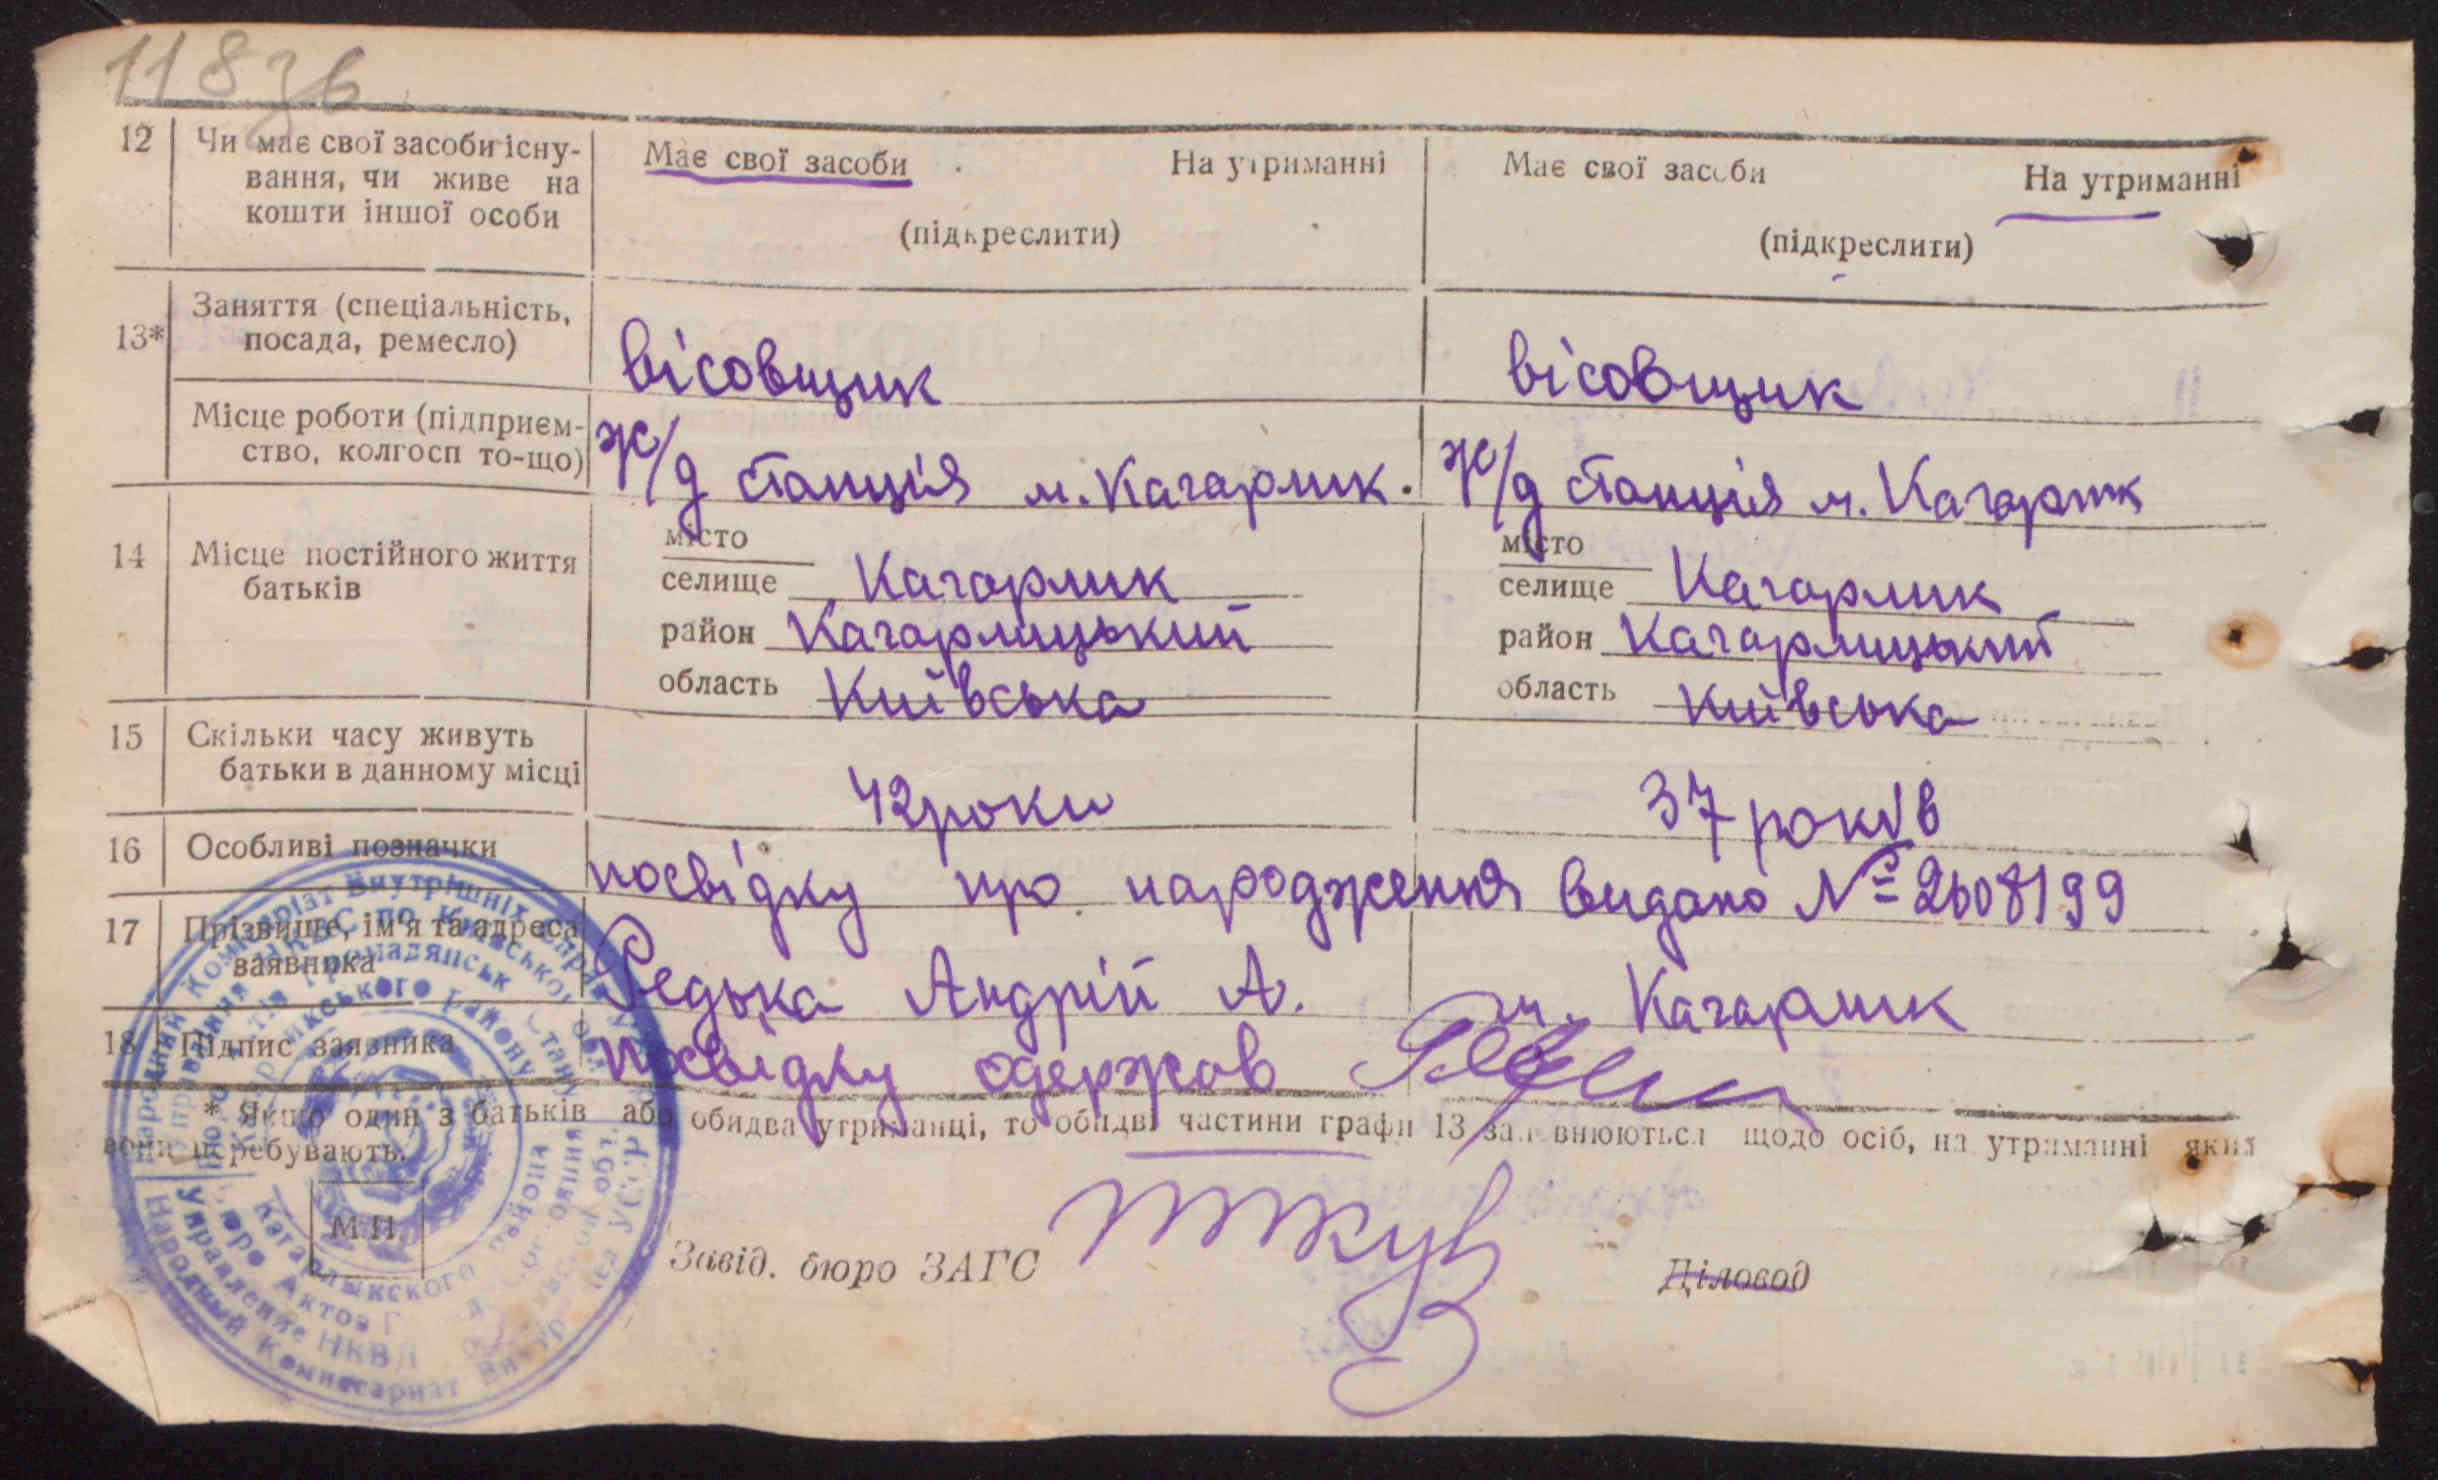 118зв
12 Чи має свої засоби існу-
вання, чи живе на
кошти іншої особи
Має свої засоби На утриманні
(підкреслити)
Має свої засоби На утриманні
(підкреслити)
13* Заняття (спеціальність,
посада, ремесло)
вісовщик вісовщик
Місце роботи (підприєм-
ство, колгосп то-що)
ж/д станція м. Кагарлик. ж/д станція м. Кагарлик
14 Місце постійного життя
батьків
місто
селище Кагарлик
район Кагарлицький
область Київська
місто
селище Кагарлик
район Кагарлицький
область Київська
15 Скільки часу живуть
батьки в данному місці
42 роки 37 років
16 Особливі позначки
посвідку про народження видано № 2608199
17 Прізвище, ім'я та адреса
заявника
Редька Андрій А. м. Кагарлик
18 Підпис заявника
посвідку одержав
* Якщо один з батьків або обидва утриманці, то обидві частини графи 13 заповнюються щодо осіб, на утриманні яких
вони перебувають.
М.П.
Завід. бюро ЗАГС
Діловод
Народний Комісаріат Внутрішніх Справ УСРР
Управління НКВС по Київській обл.
Кагарликського району
Народный Комиссариат Внутр. Дел УССР
Управление НКВД
Бюро Актов
Кагарлыкского района